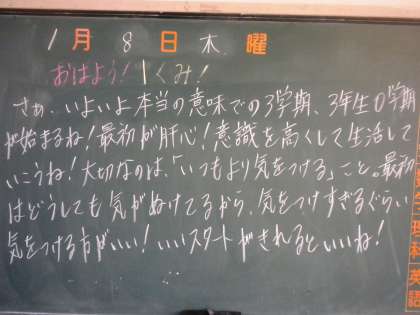 1月8日木曜
おはよう!1くみ!
さぁ、いよいよ本当の意味での3学期、3年生0学期
が始まるね!最初が肝心!意識を高くして生活して
いこうね!大切なのは、「いつもより気をつける」こと。最初
はどうしても気がぬけてるから、気をつけすぎるぐらい
気をつける方がいい!いいスタートがきれるといいね!
理科
英語